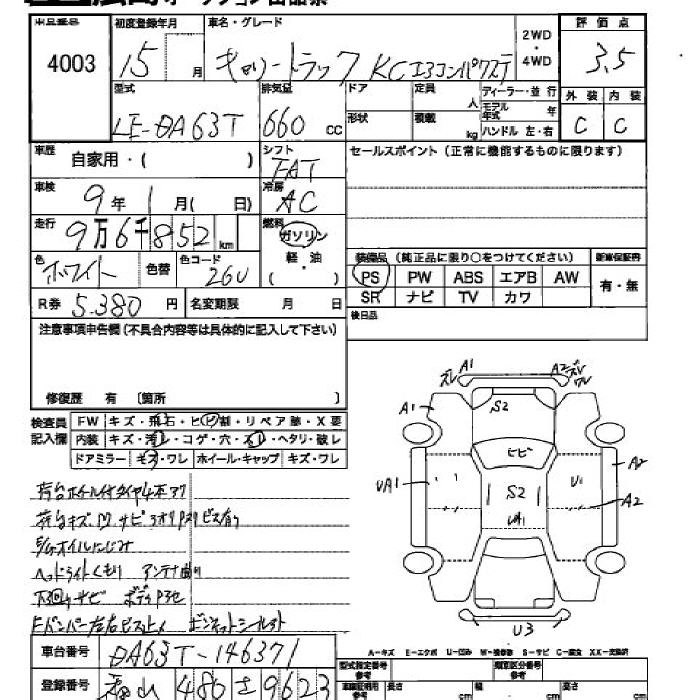 出品番号 初度登録年月 車名・グレード 2WD・4WD 評価点
4003 15 月 キャリートラック KCエアコンパワステ 3.5
型式 排気量 ドア 定員 人 ディーラー・並行 外装 内装
LE-DA63T 660 cc 形状 積載 kg モデル年式 年 ハンドル 左・右 C C
車歴 自家用・( ) シフト FAT セールスポイント(正常に機能するものに限ります)
車検 9年 1月( 日) 冷房 AC
走行 9万6千852km 燃料 ガソリン
色 ホワイト 色替 色コード 26U 軽油 ( )
装備品(純正品に限り○をつけてください) 新車保証書
PS PW ABS エアB AW 有・無
SR ナビ TV カワ
R券 5,380円 名変期限 月 日
後日品
注意事項申告欄(不具合内容等は具体的に記入して下さい)
修復歴 有 〔箇所 〕
検査員記入欄 FW キズ・飛石・ヒビ割・リペア跡・X要
内装 キズ・汚レ・コゲ・穴・スレ・ヘタリ・破レ
ドアミラー キズ・ワレ ホイール・キャップ キズ・ワレ
荷台ホイール付タイヤ4本アリ
荷台キズ凹サビ
ヘッドライトくもり アンテナ曲り
下回りサビ
ズレ A1 A2 ズレ ワレ
A1 S2
ヒビ
UA1 S2 U1 A2
UA1 A2
U3
A-キズ E-エクボ U-凹み W-補修跡 S-サビ C-腐食 XX-交換済
車台番号 DA63T-146371
型式指定番号 参考 類別区分番号 参考
登録番号 486 さ 9623
車庫証明用 参考 長さ cm 幅 cm 高さ cm